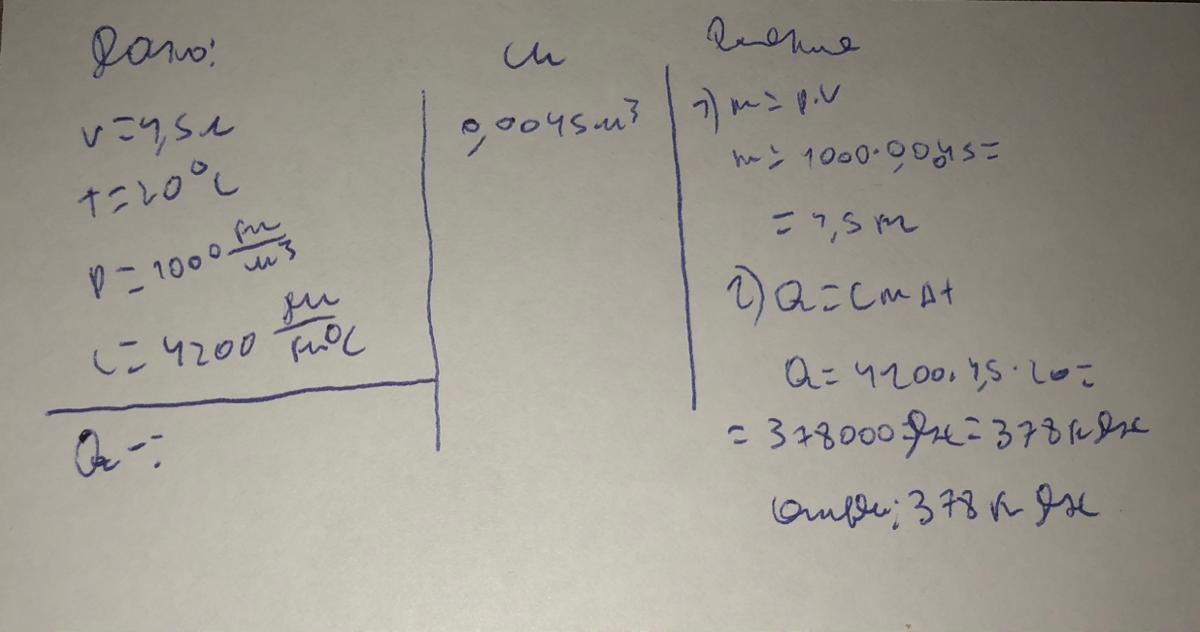 Дано:
V=4,5л
t=20°C
ρ=1000 кг/м³
c=4200 Дж/кг°C
Q-?
СИ
0,0045м³
Решение
1) m=ρ·V
m=1000·0,0045=
=4,5 кг
2) Q=cmΔt
Q=4200·4,5·20=
=378000Дж=378кДж
Ответ: 378кДж